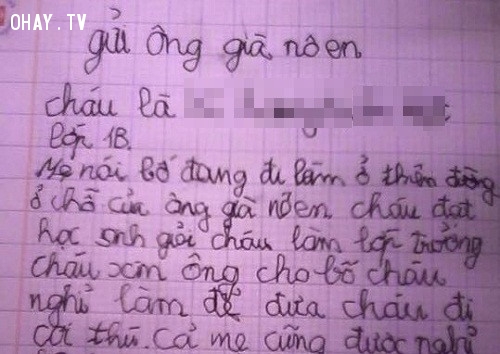 OHAY.TV
gửi ông già nôen
cháu là
lớp 1B.
Mẹ nói bố đang đi làm ở thiên đường
ở chỗ của ông già nôen cháu đạt
học snh giỏi cháu làm lớp trưởng
cháu xin ông cho bố cháu
nghỉ làm để đưa cháu đi
coi thú. Cả mẹ cũng được nghỉ